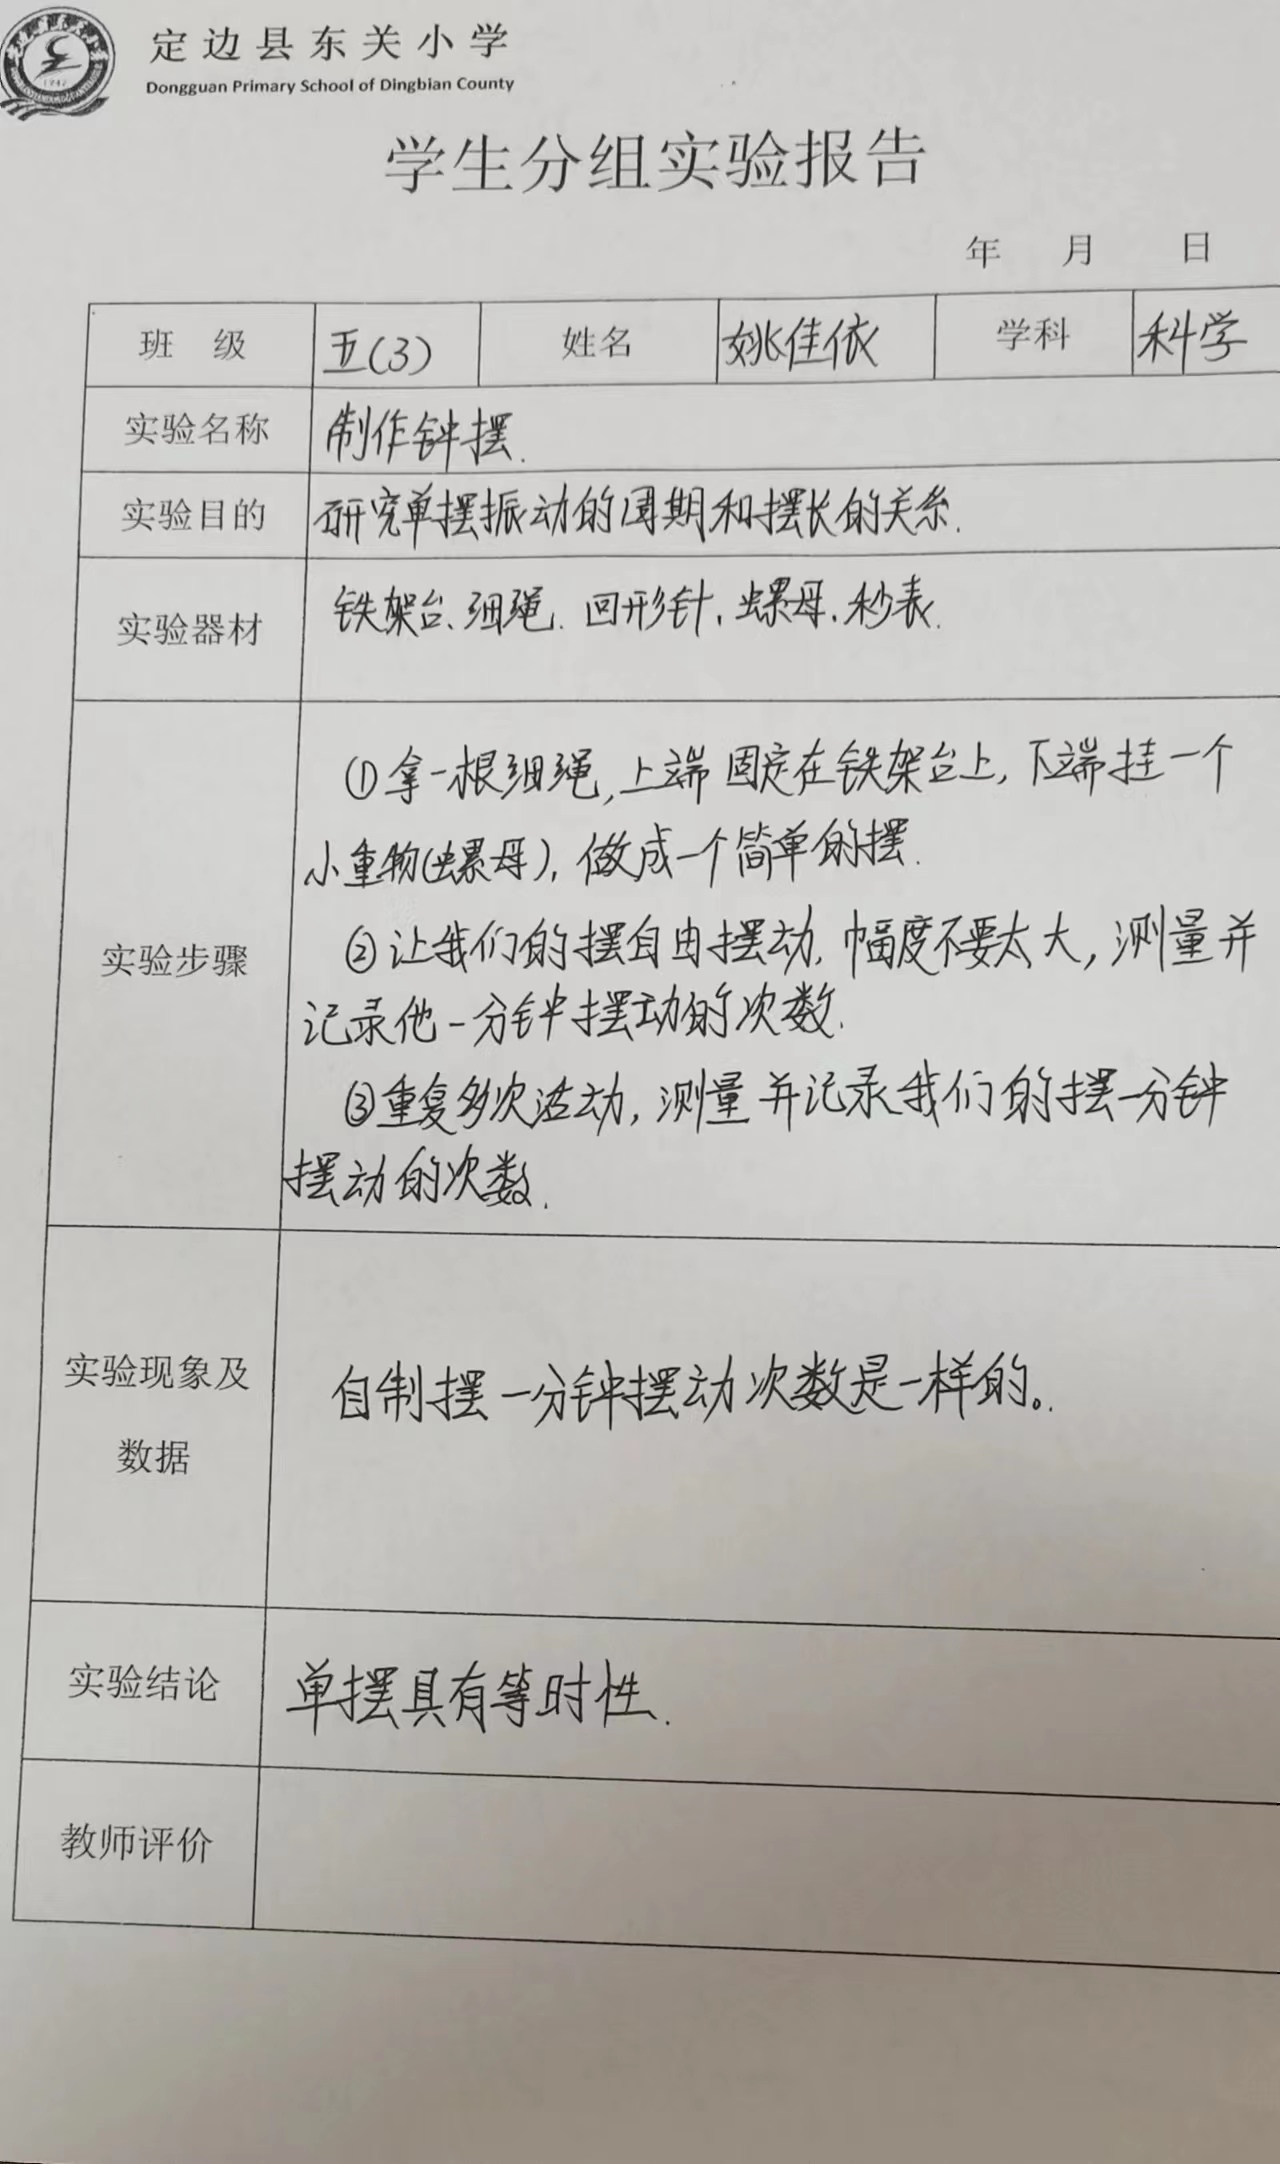 定边县东关小学
Dongguan Primary School of Dingbian County
学生分组实验报告
年 月 日
班 级 五(3) 姓名 姚佳依 学科 科学
实验名称 制作钟摆.
实验目的 研究单摆振动的周期和摆长的关系.
实验器材 铁架台、细绳.回形针.螺母.秒表.
实验步骤
①拿一根细绳,上端固定在铁架台上,下端挂一个
小重物(螺母),做成一个简单的摆.
②让我们的摆自由摆动,幅度不要太大,测量并
记录他一分钟摆动的次数.
③重复多次活动,测量并记录我们的摆一分钟
摆动的次数.
实验现象及
数据
自制摆一分钟摆动次数是一样的。.
实验结论 单摆具有等时性.
教师评价